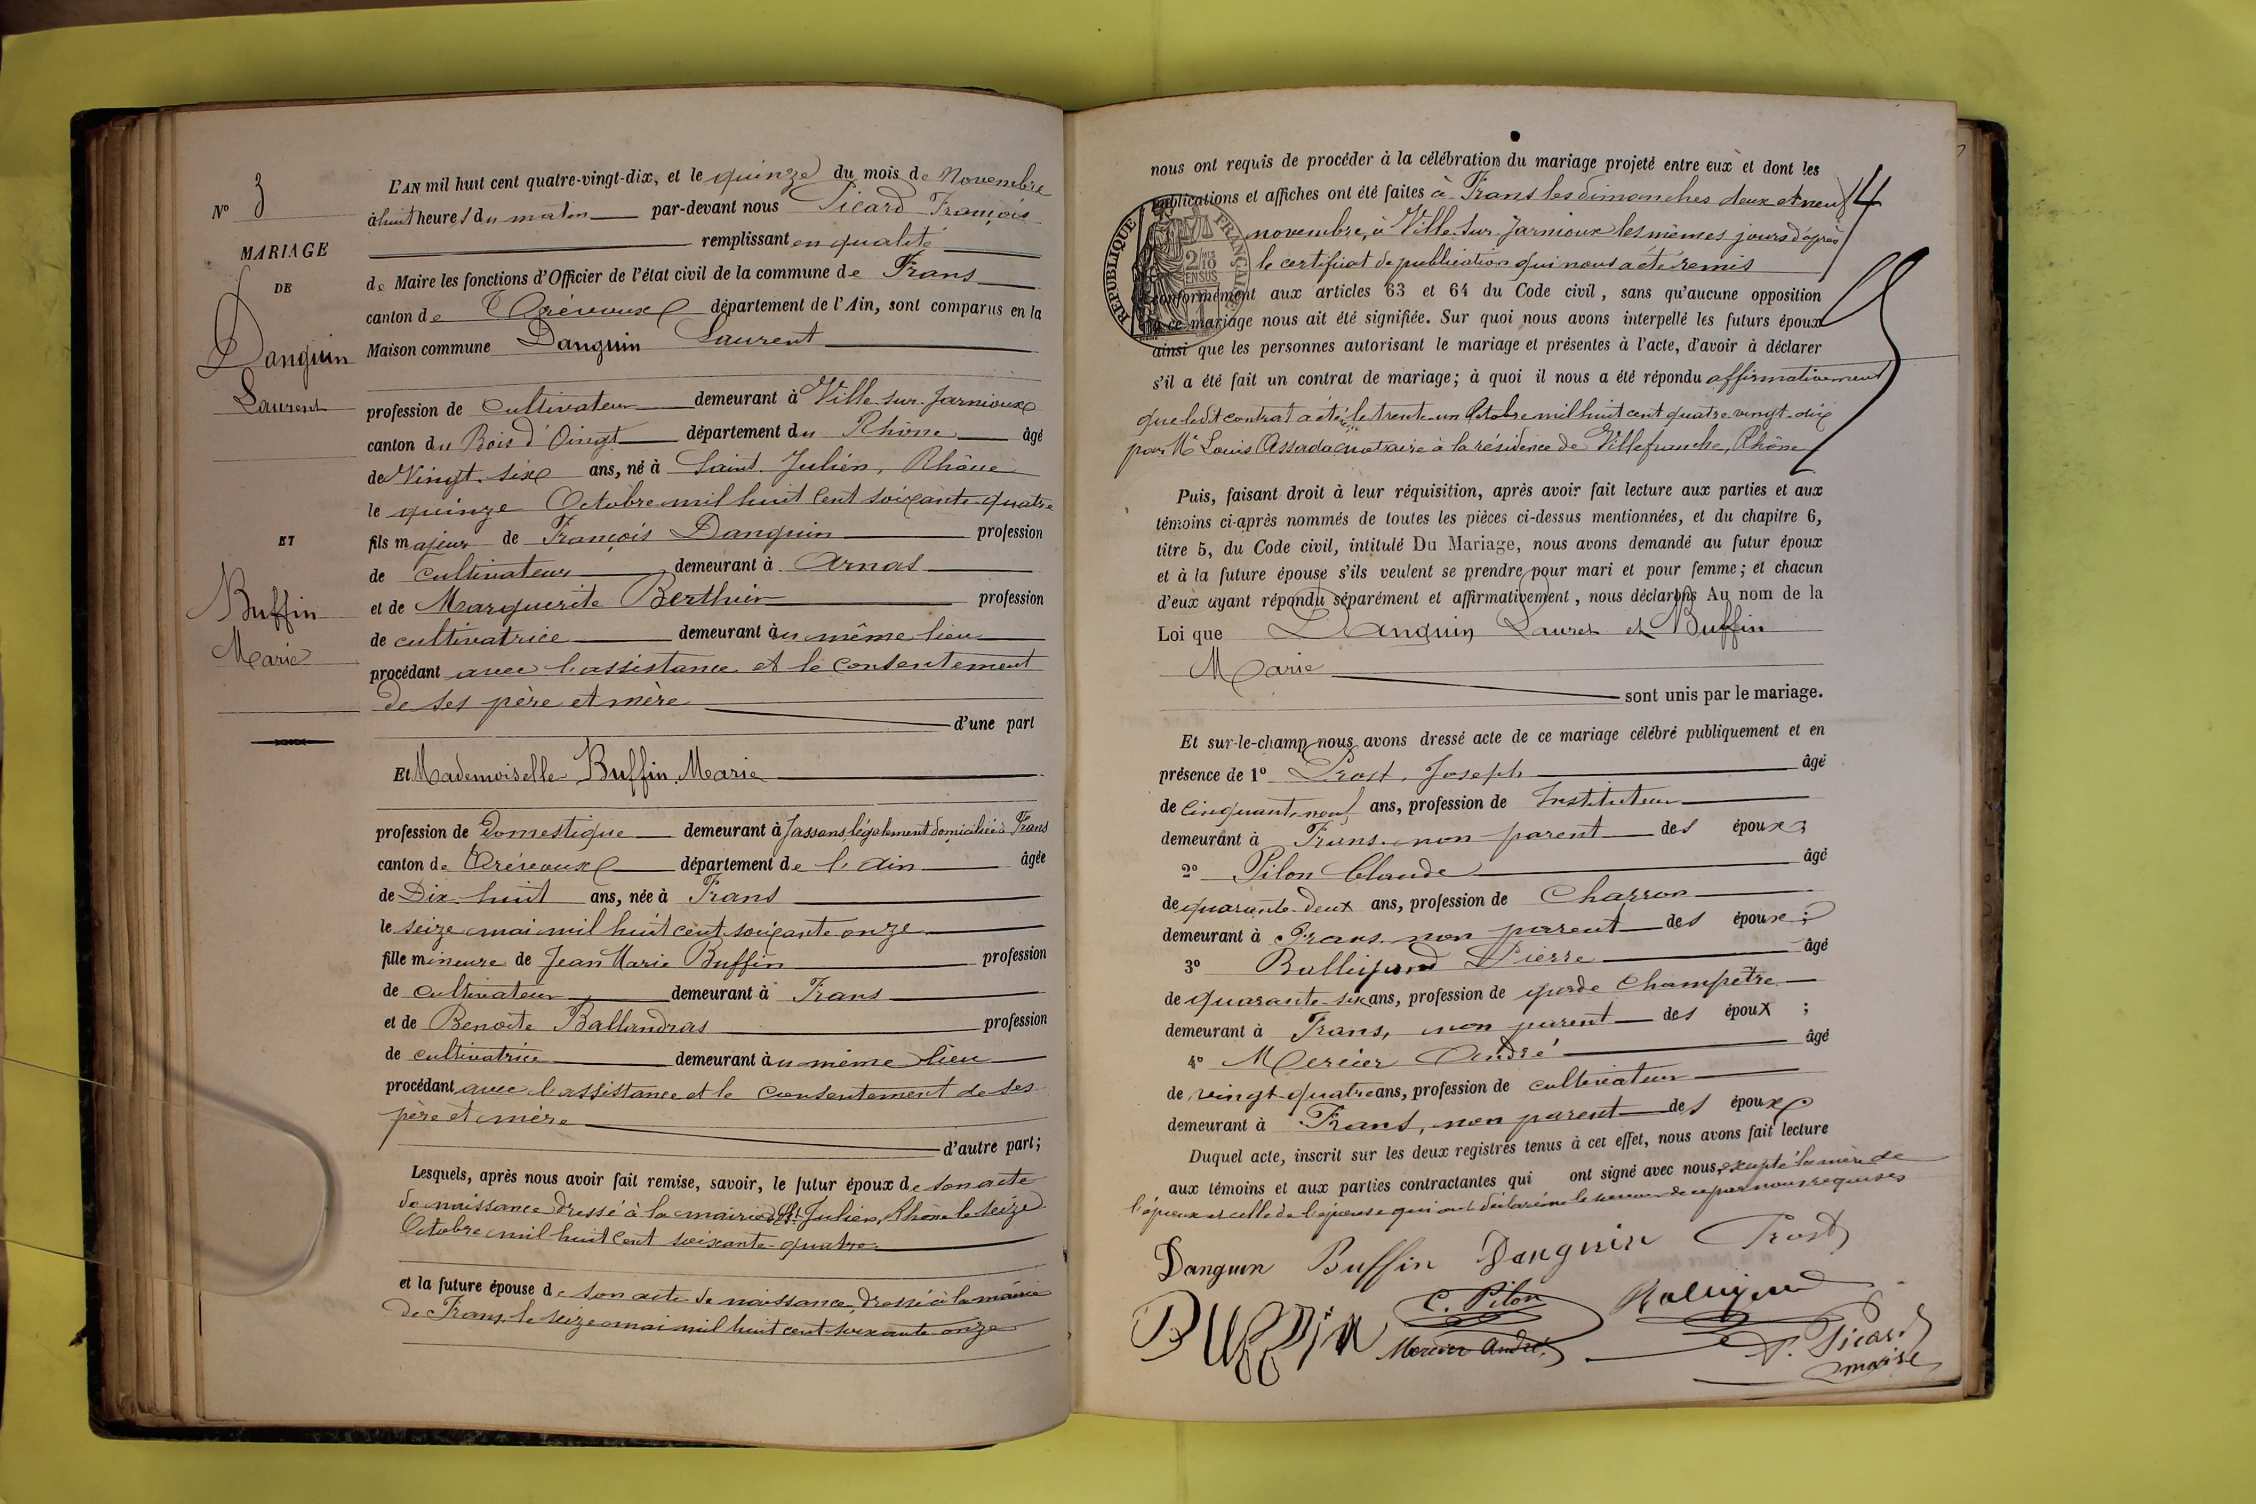 N° 3
MARIAGE
DE
Danguin
Laurent
ET
Buffin
Marie
L'AN mil huit cent quatre-vingt-dix, et le quinze du mois de Novembre
à huit heures du matin par-devant nous Picard François
remplissant en qualité
de Maire les fonctions d'Officier de l'état civil de la commune de Frans
canton de Trévoux département de l'Ain, sont comparus en la
Maison commune Danguin Laurent
profession de Cultivateur demeurant à Ville-sur-Jarnioux
canton du Bois d'Oingt département du Rhône âgé
de Vingt-six ans, né à Saint-Julien, Rhône
le quinze Octobre mil huit cent soixante-quatre
fils majeur de François Danguin profession
de cultivateur demeurant à Arnas
et de Marguerite Berthier profession
de cultivatrice demeurant au même lieu
procédant avec l'assistance et le consentement
de ses père et mère
d'une part
Et Mademoiselle Buffin Marie
profession de Domestique demeurant à Jassans légalement domiciliée à Frans
canton de Trévoux département de l'Ain âgée
de Dix-huit ans, née à Frans
le seize mai mil huit cent soixante onze
fille mineure de Jean Marie Buffin profession
de cultivateur demeurant à Frans
et de Benoite Ballandras profession
de cultivatrice demeurant au même lieu
procédant avec l'assistance et le consentement de ses
père et mère
d'autre part;
Lesquels, après nous avoir fait remise, savoir, le futur époux de son acte
de naissance dressé à la mairie de St Julien, Rhône le seize
Octobre mil huit cent soixante-quatre
et la future épouse de son acte de naissance, dressé à la mairie
de Frans, le seize mai mil huit cent soixante onze
nous ont requis de procéder à la célébration du mariage projeté entre eux et dont les
publications et affiches ont été faites à Frans les dimanches deux et neuf
14
novembre, à Ville-sur-Jarnioux les mêmes jours d'après
le certificat de publication qui nous a été remis
RÉPUBLIQUE FRANÇAISE
conformément aux articles 63 et 64 du Code civil, sans qu'aucune opposition
à ce mariage nous ait été signifiée. Sur quoi nous avons interpellé les futurs époux
ainsi que les personnes autorisant le mariage et présentes à l'acte, d'avoir à déclarer
s'il a été fait un contrat de mariage; à quoi il nous a été répondu affirmativement
que ledit contrat a été le trente-un Octobre mil huit cent quatre-vingt-dix
par Me Louis Assada notaire à la résidence de Villefranche, Rhône
Puis, faisant droit à leur réquisition, après avoir fait lecture aux parties et aux
témoins ci-après nommés de toutes les pièces ci-dessus mentionnées, et du chapitre 6,
titre 5, du Code civil, intitulé Du Mariage, nous avons demandé au futur époux
et à la future épouse s'ils veulent se prendre pour mari et pour femme; et chacun
d'eux ayant répondu séparément et affirmativement, nous déclarons Au nom de la
Loi que Danguin Lauret et Buffin
Marie
sont unis par le mariage.
Et sur-le-champ nous avons dressé acte de ce mariage célébré publiquement et en
présence de 1° Prost Joseph âgé
de cinquante-neuf ans, profession de Instituteur
demeurant à Frans non parent des époux;
2° Pilon Claude âgé
de quarante-deux ans, profession de Charron
demeurant à Frans non parent des époux;
3° Pierre âgé
de quarante-six ans, profession de garde champêtre
demeurant à Frans, non parent des époux;
4° Mercier André âgé
de vingt-quatre ans, profession de cultivateur
demeurant à Frans, non parent des époux
Duquel acte, inscrit sur les deux registres tenus à cet effet, nous avons fait lecture
aux témoins et aux parties contractantes qui ont signé avec nous, excepté la mère de
l'époux et celle de l'épouse qui ont déclaré ne le savoir de ce par nous requises
Danguin Buffin Danguin Prost
Buffin C. Pilon
Mercier André F. Picard
maire